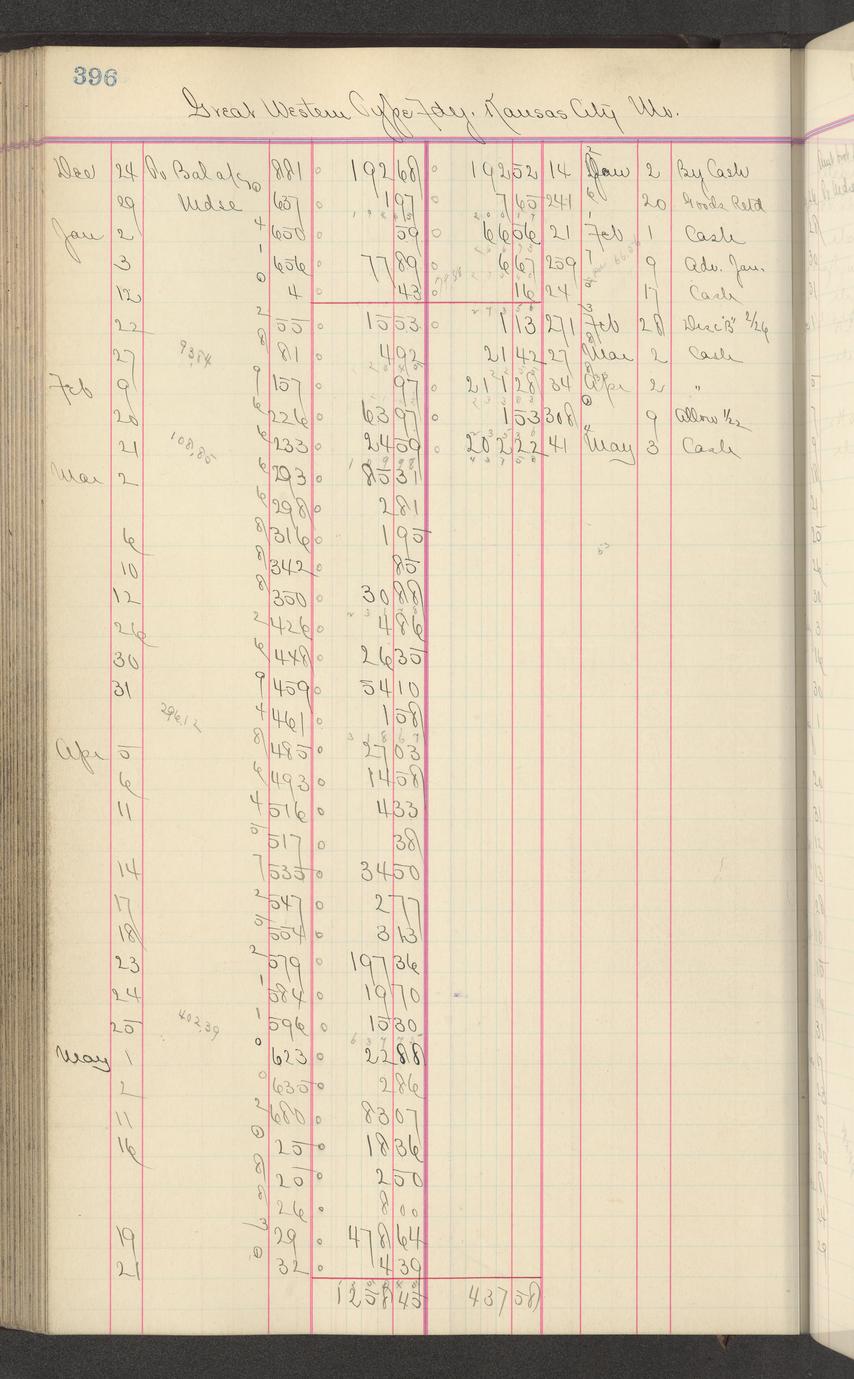 396
Great Western Type Fdy. Kansas City Mo.
Dec 24 To Bal a/c 881 192 68 192 52 14 Jan 2 By Cash
29 Mdse 637 1 97 7 65 241 20 Goods Retd
Jan 2 650 59 66 56 21 Feb 1 Cash
3 656 77 89 6 67 259 9 Adv. Jan.
12 4 43 16 24 17 Cash
22 55 15 53 1 13 271 Feb 28 Disc "B" 2/26
27 81 4 92 21 42 27 Mar 2 Cash
93,84
Feb 9 157 97 211 28 34 Apr 2 "
20 226 63 97 1 53 308 " 9 Allow 1/22
21 233 24 59 202 22 41 May 3 Cash
108,85
Mar 2 293 85 31
298 2 81
6 316 1 95
10 342 85
12 350 30 88
26 426 4 86
30 448 26 35
31 459 54 10
461 1 58
296,12
Apr 5 485 27 03
6 493 14 58
11 516 4 33
517 38
14 535 34 50
17 547 2 77
18 554 3 13
23 579 197 36
24 584 19 70
25 596 15 30
402,39
May 1 623 22 88
2 635 2 86
11 680 83 07
16 25 18 36
25 2 50
26 8 00
19 29 478 64
21 32 4 39
1258 45 437 58